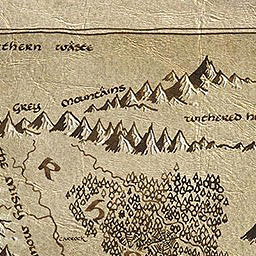 thern Waste
Grey Mountains
Withered H
R
The Misty Mou
Carrock